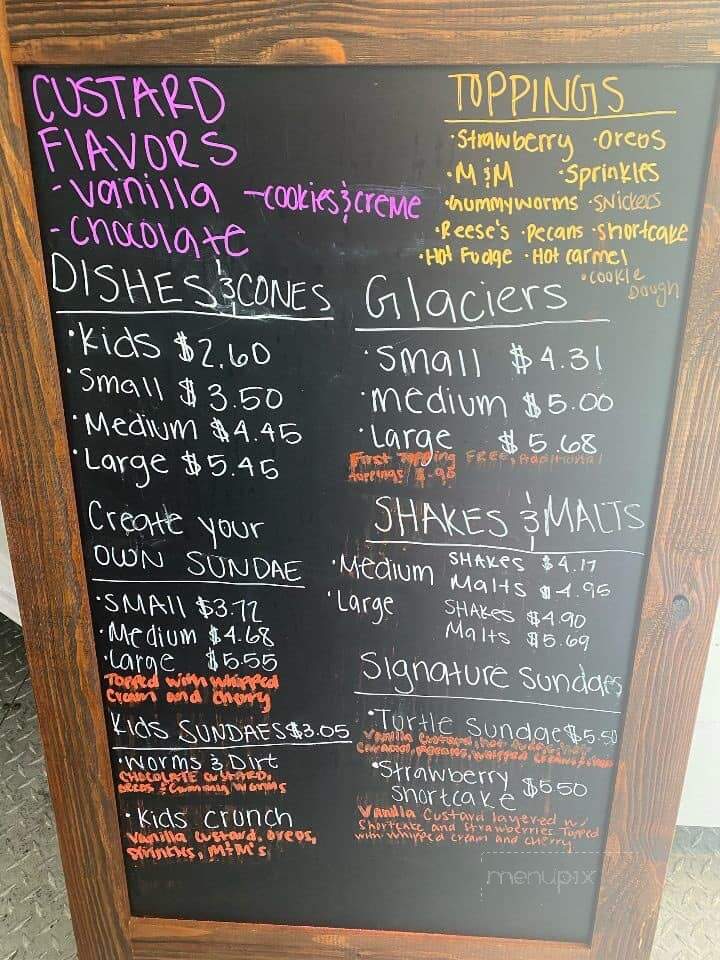 CUSTARD
FLAVORS
- Vanilla - cookies & creme
- chocolate
TOPPINGS
· Strawberry · Oreos
· M & M · Sprinkles
· Gummyworms · Snickers
· Reese's · Pecans · Shortcake
· Hot Fudge · Hot carmel
· Cookie
Dough
DISHES & CONES
· Kids $2.60
· Small $3.50
· Medium $4.45
· Large $5.45
Glaciers
· Small $4.31
· medium $5.00
· Large $5.68
First Topping FREE, Additional
toppings $.95
Create your
OWN SUNDAE
· SMAll $3.72
· Medium $4.68
· Large $5.55
Topped with whipped
Cream and cherry
SHAKES & MALTS
· Medium SHAKES $4.17
Malts $4.95
· Large SHAKES $4.90
Malts $5.69
Kids SUNDAES $3.05
· Worms & Dirt
CHOCOLATE CUSTARD,
OREOS & Gummy Worms
· Kids crunch
Vanilla Custard, Oreos,
Sprinkles, M&M's
Signature Sundaes
· Turtle Sundae $5.50
Vanilla Custard, hot fudge, hot
caramel, Pecans, whipped cream,
· Strawberry
Shortcake $5.50
Vanilla Custard layered w/
Shortcake and Strawberries Topped
with whipped cream and cherry
menupix